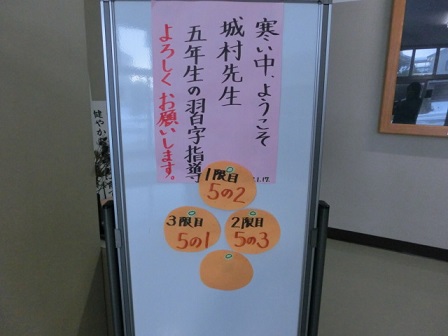 寒い中、ようこそ
城村先生
五年生の習字指導
よろしくお願いします。
1限目
5の2
3限目
5の1
2限目
5の3
健やか